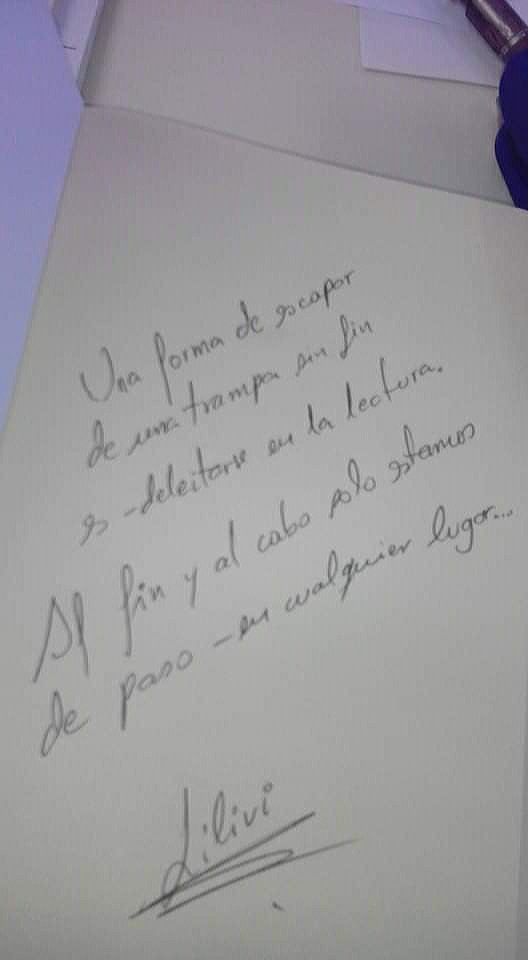 Una forma de escapar
de una trampa sin fin
es -deleitarse en la lectura.
Al fin y al cabo solo estamos
de paso -en cualquier lugar...
Lilivi